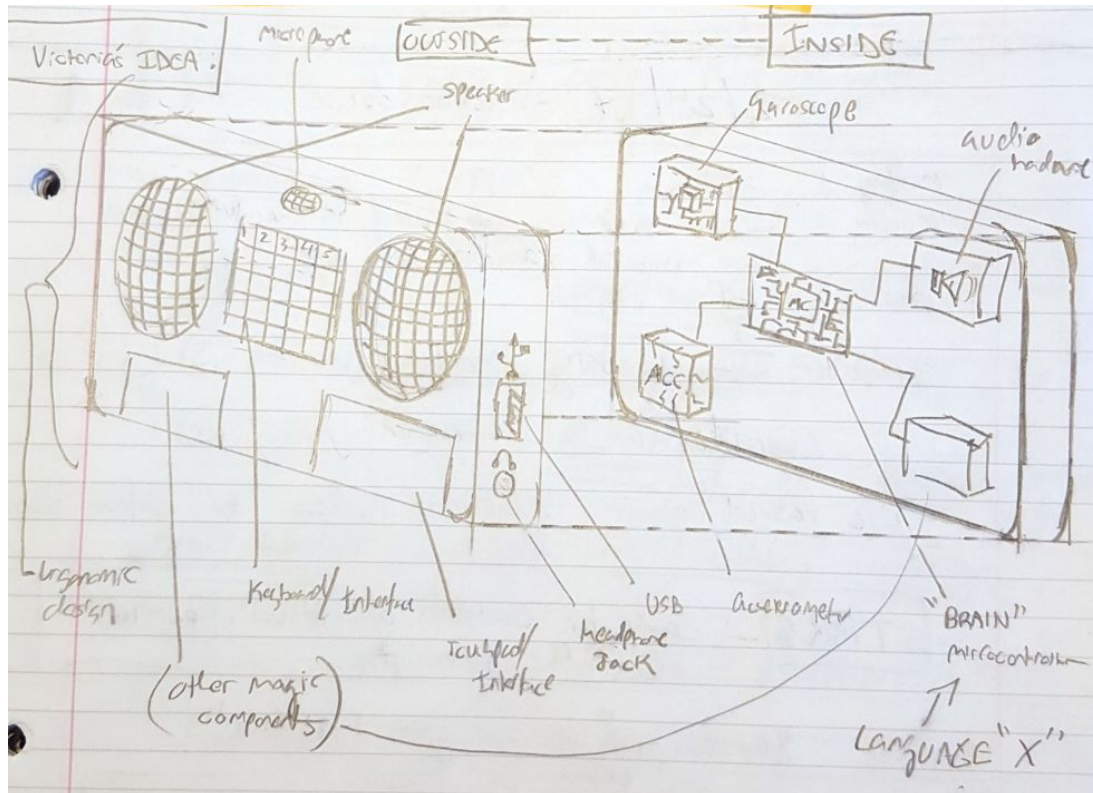 Victoria's IDEA:
Microphone
OUTSIDE
INSIDE
Speaker
Gyroscope
audio
hardware
1 2 3 4 5
MC
ACC
Ergonomic
design
Keyboard/Interface
Touchpad/
Interface
Headphone
Jack
USB
Accelerometer
"BRAIN"
microcontroller
(other magic
components)
LANGUAGE "X"